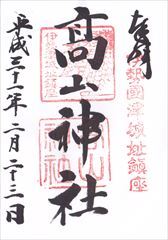 奉拝
伊勢國津城址鎮座
髙山神社
平成三十一年二月二十三日